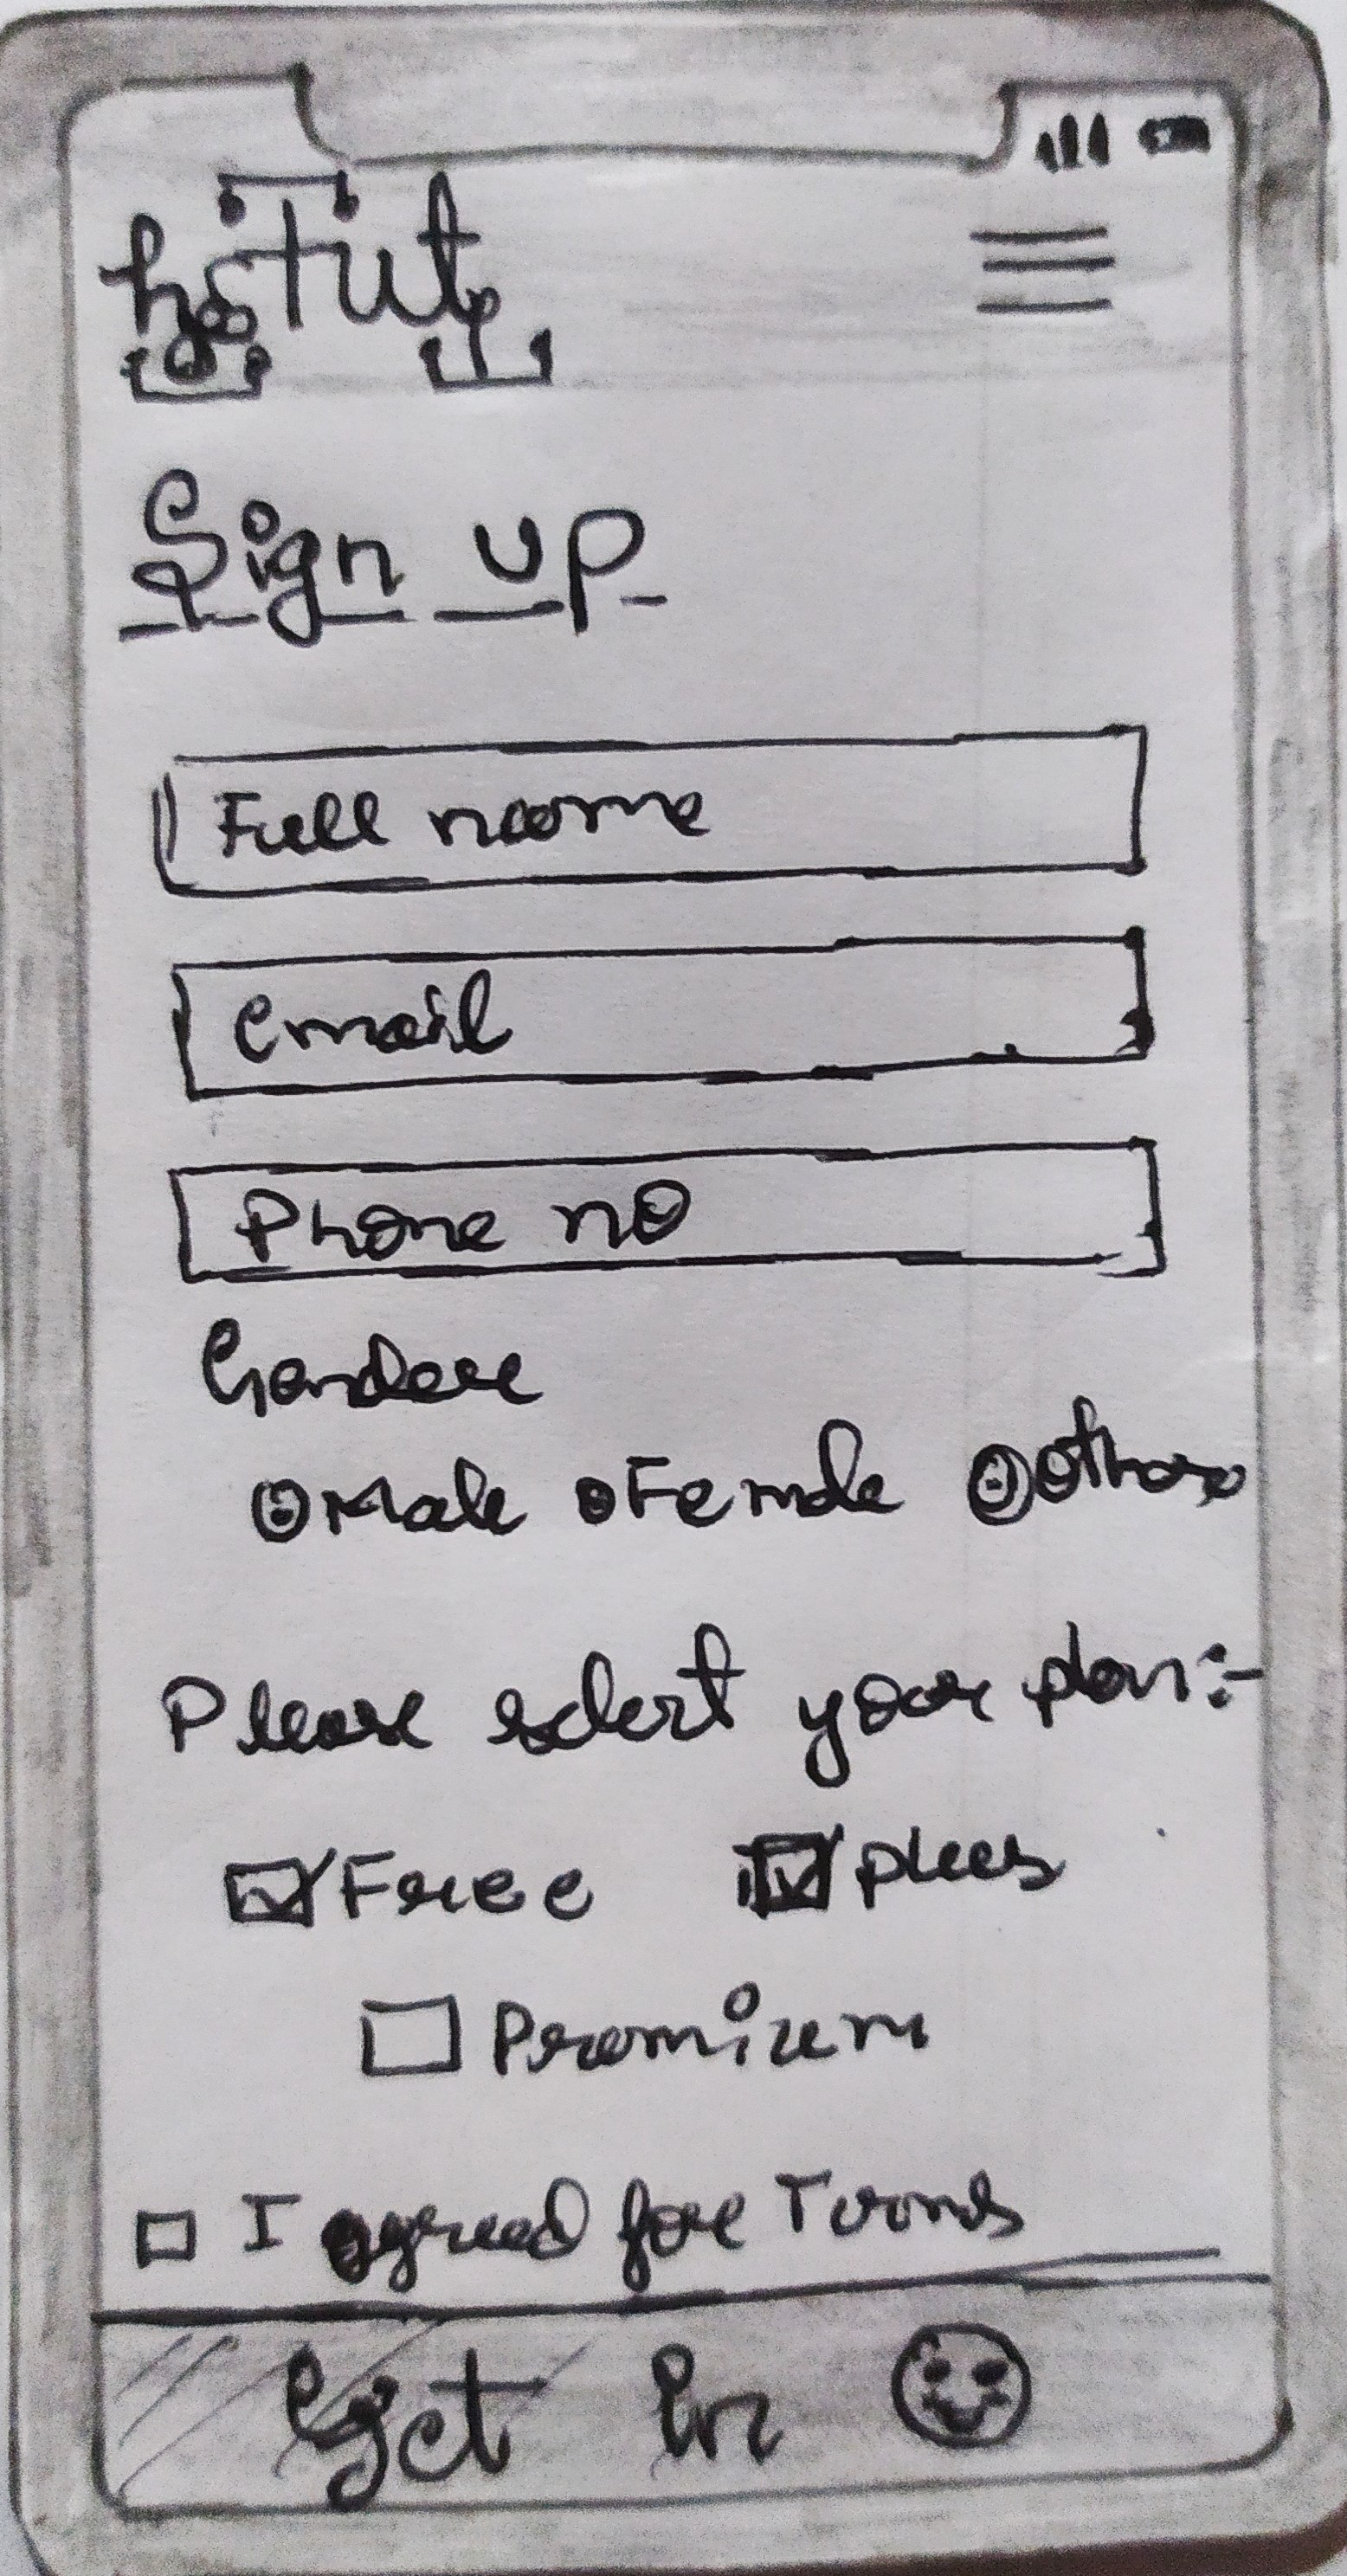 Sign up
Full name
email
Phone no
Gender
Male Female Other
Please select your plan:-
Free plus
Premium
I agreed for Terms
Get in